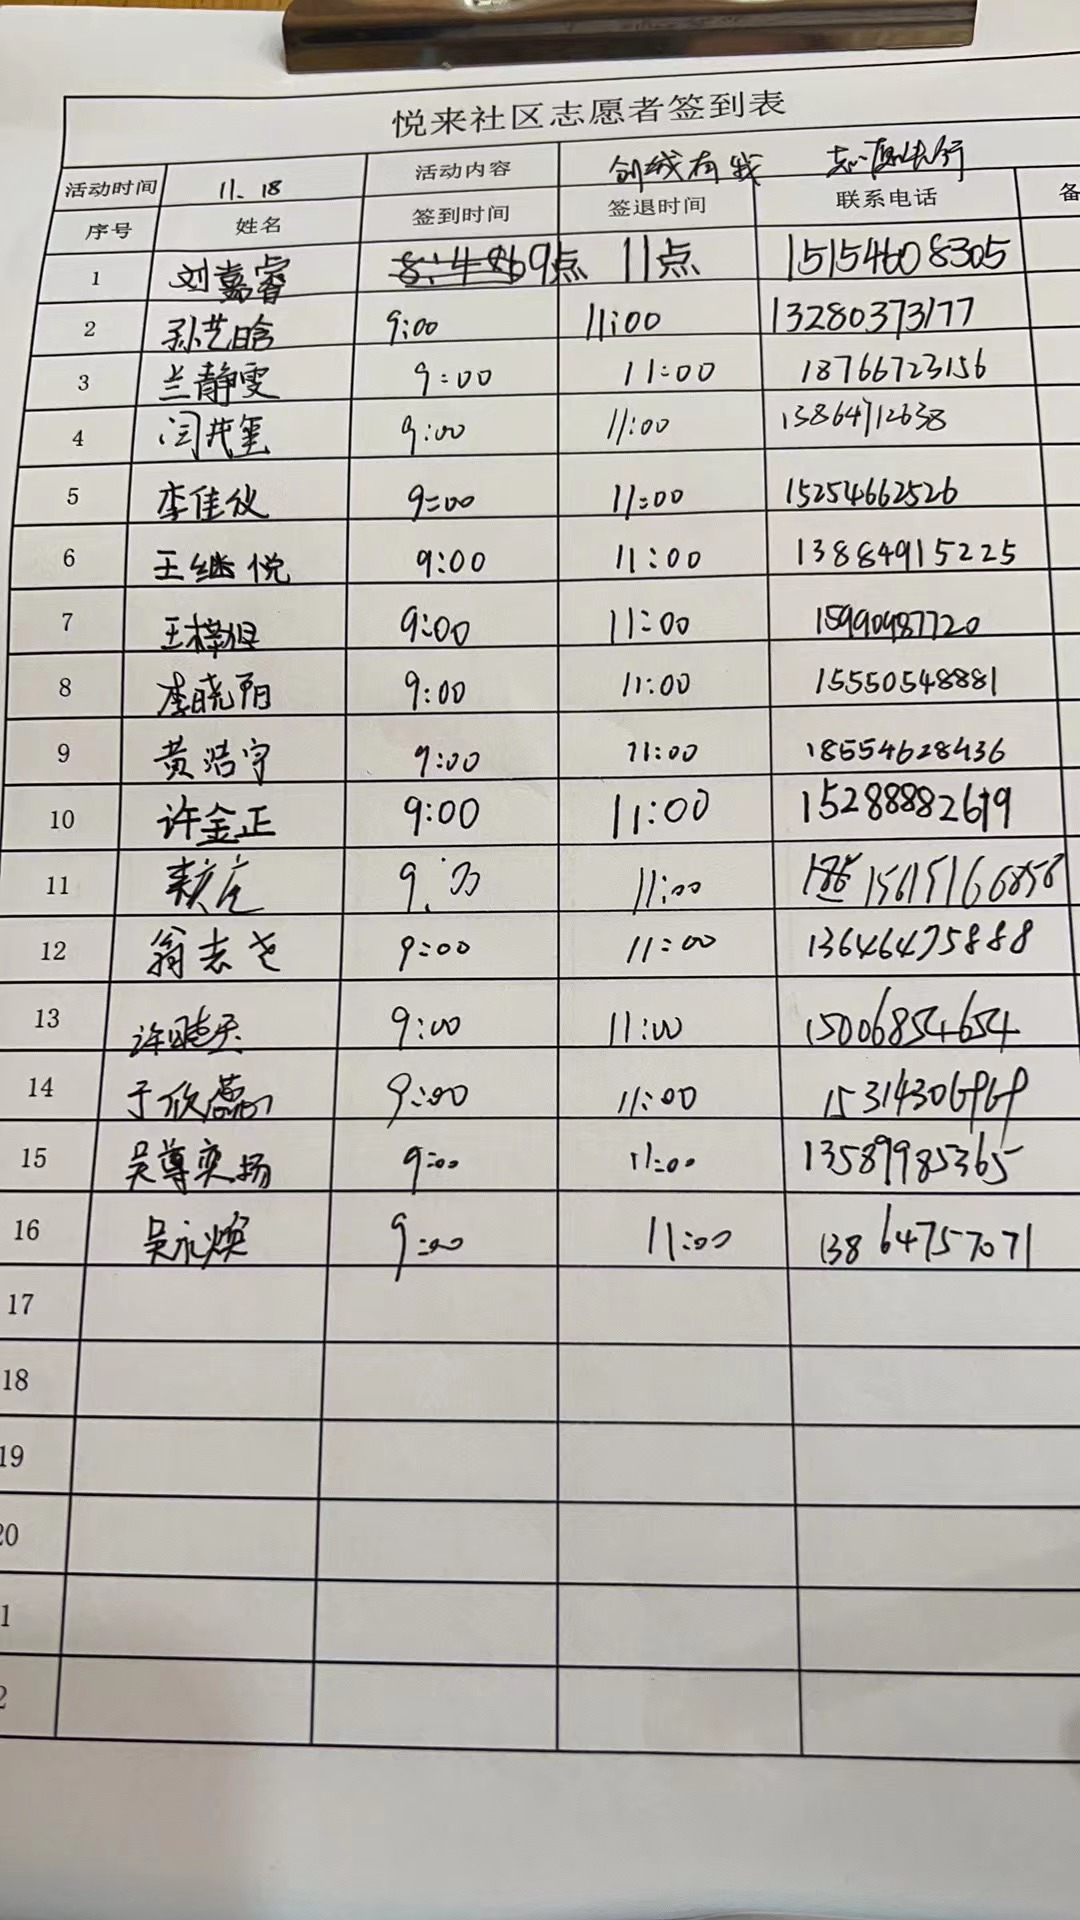 悦来社区志愿者签到表
活动时间 11.18 活动内容 创城有我 志愿先行
序号 姓名 签到时间 签退时间 联系电话 备
1 刘嘉睿 9点 11点 15154608305
2 孙艺晗 9:00 11:00 13280373177
3 兰静雯 9:00 11:00 18766723156
4 闫 9:00 11:00 13864712638
5 李佳仪 9:00 11:00 15254662526
6 王继悦 9:00 11:00 13884915225
7 王梓 9:00 11:00 15990987720
8 李晓阳 9:00 11:00 15550548881
9 黄浩宇 9:00 11:00 18554628436
10 许金正 9:00 11:00 15288882619
11 9:00 11:00 15615166858
12 翁志 9:00 11:00 13646475888
13 许 9:00 11:00 15006854654
14 于欣 9:00 11:00 15314306969
15 吴尊奕扬 9:00 11:00 13589985365
16 吴永焕 9:00 11:00 13864757071
17
18
19
20
1
2